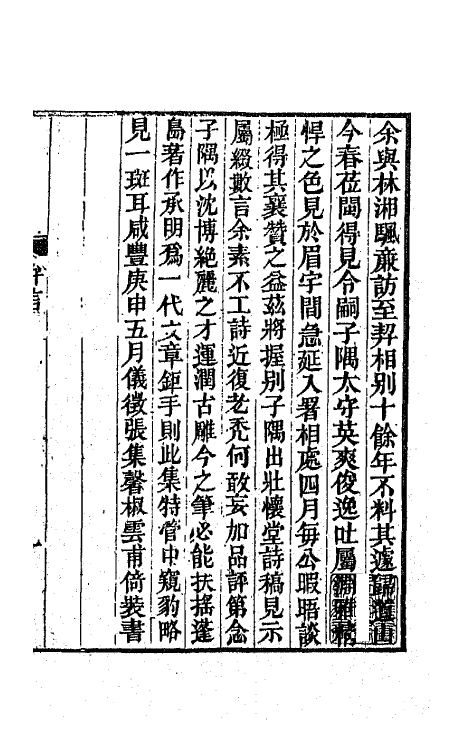 余與林湘颿廉訪至契相別十餘年不料其遽歸道山
今春莅閩得見令嗣子隅太守英爽俊逸吐屬淵雅精
悍之色見於眉宇間急延入署相處四月每公暇晤談
極得其襄贊之益茲將握別子隅出壯懷堂詩稿見示
屬綴數言余素不工詩近復老禿何敢妄加品評第念
子隅以沈博絕麗之才運潤古雕今之筆必能扶搖蓬
島著作承明爲一代文章鉅手則此集特管中窺豹略
見一斑耳咸豐庚申五月儀徵張集馨椒雲甫倚裝書
弁言